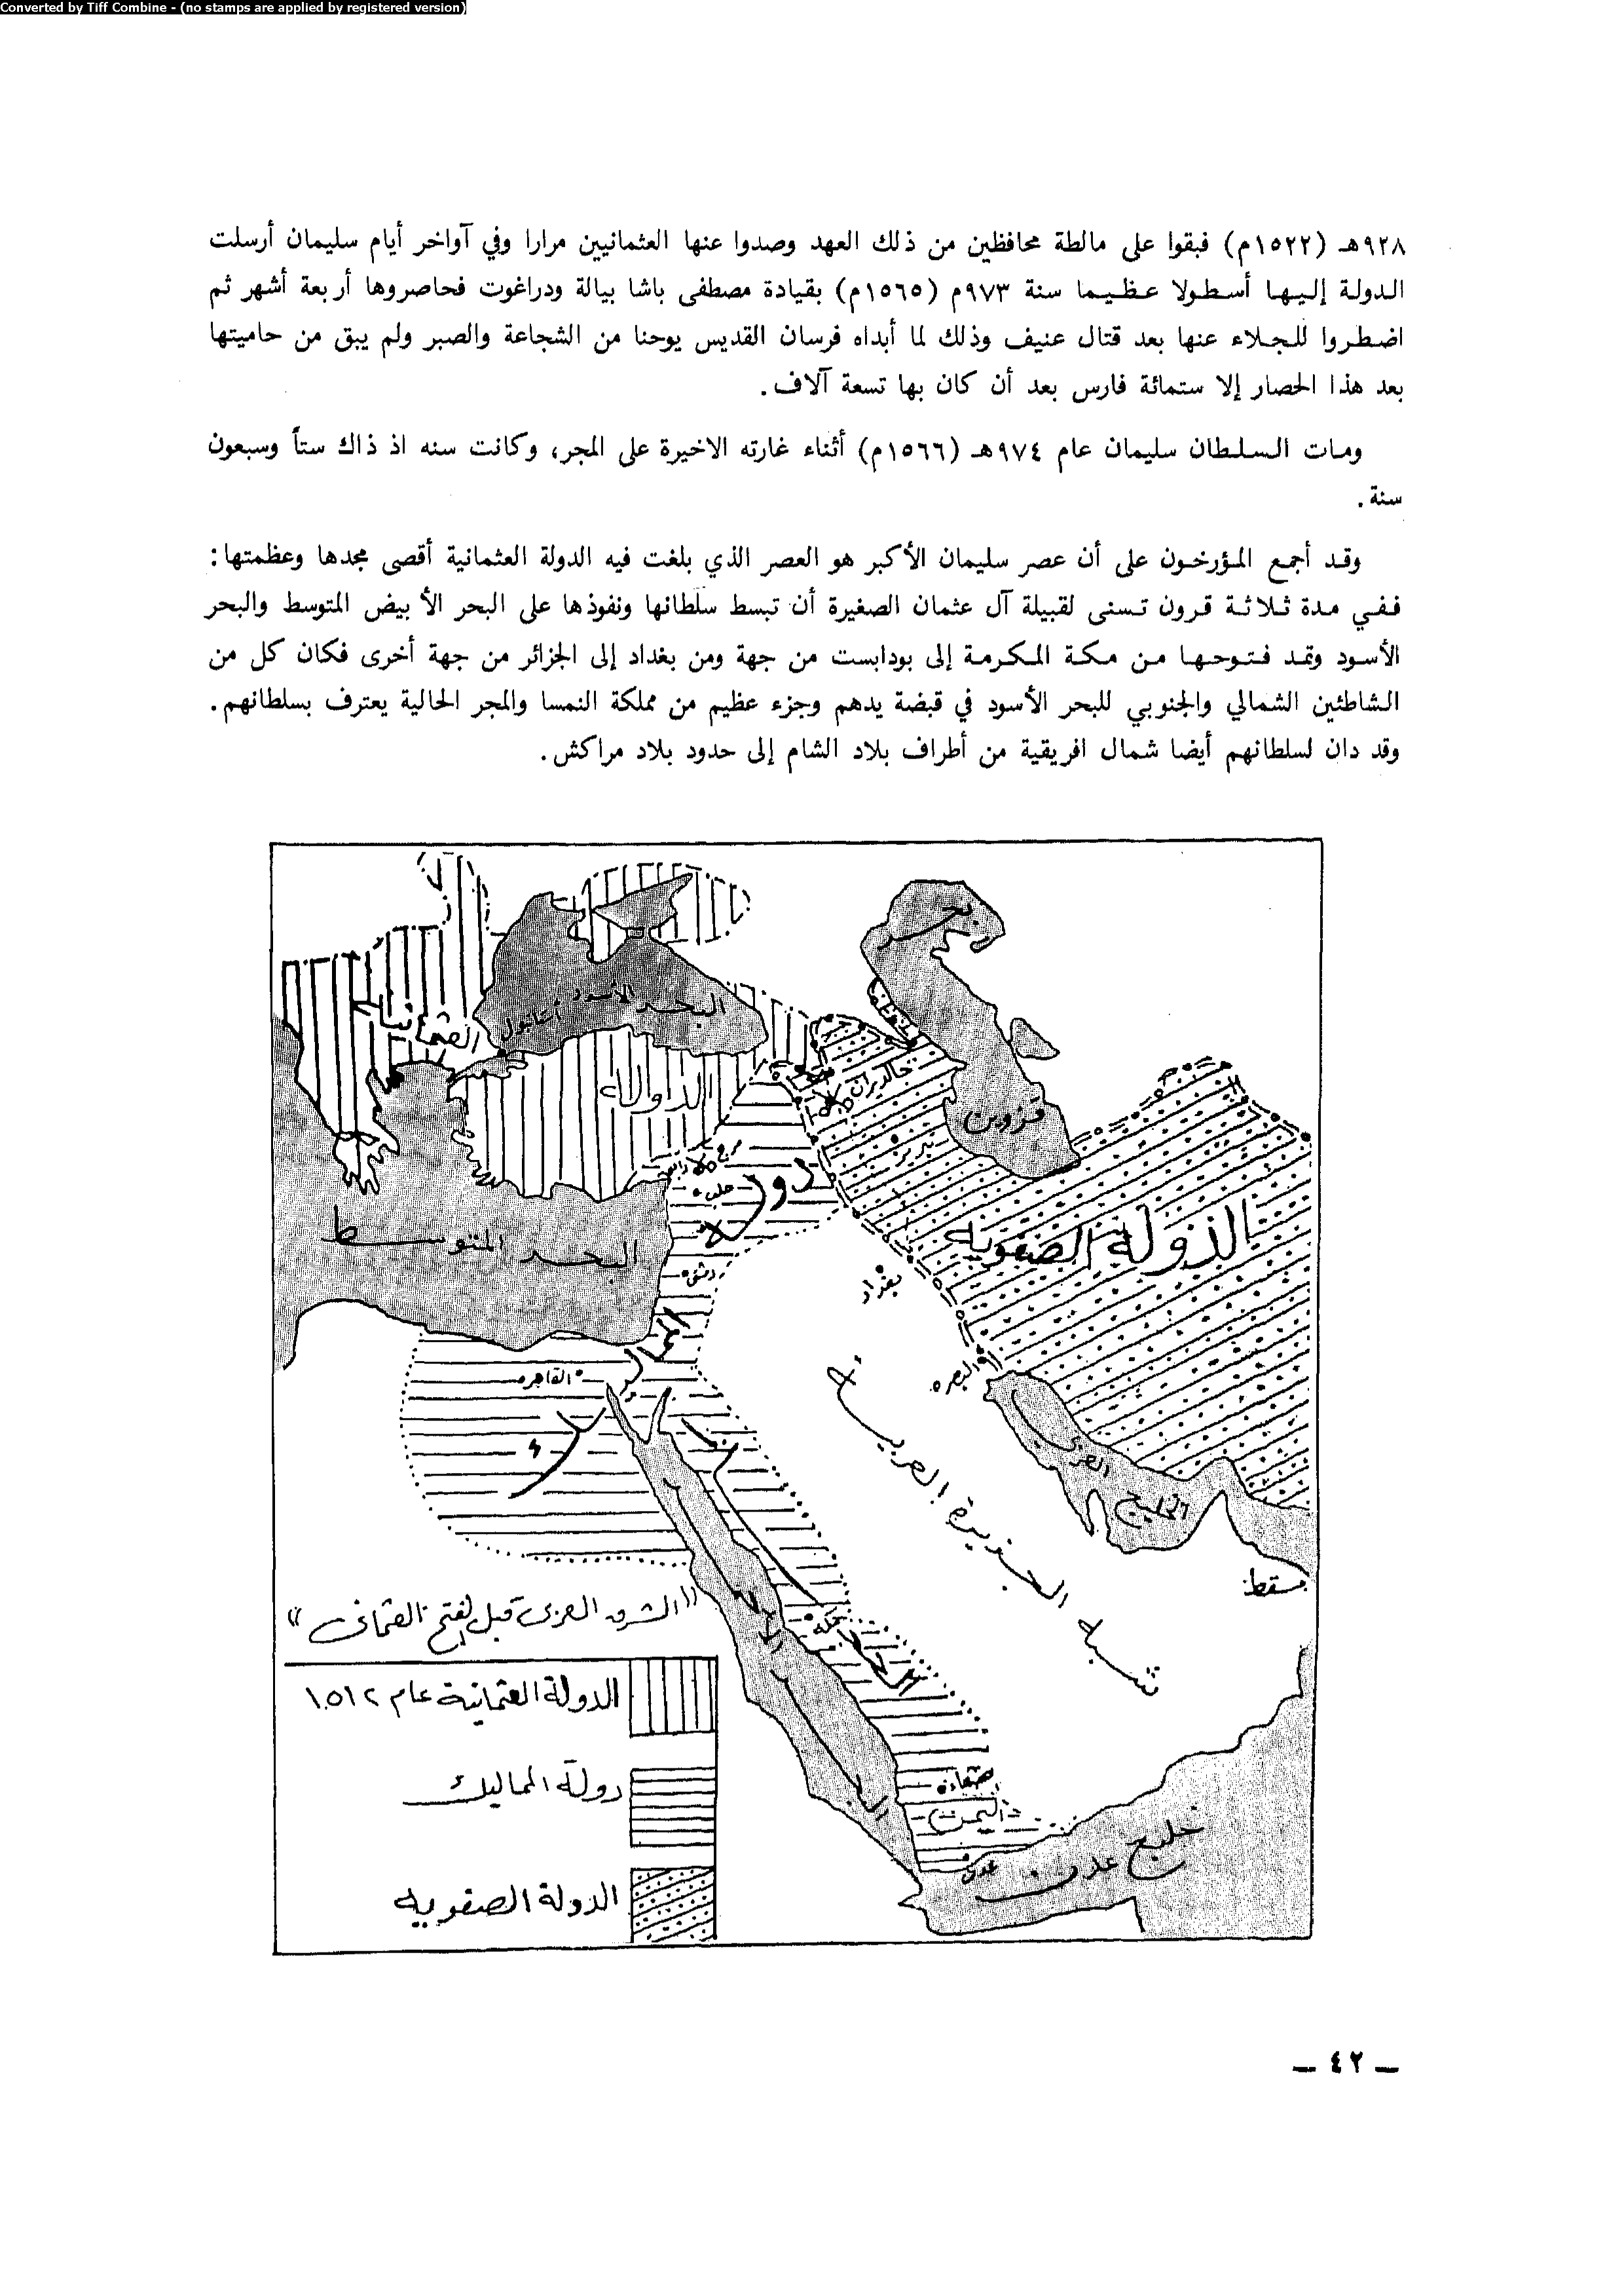 Converted by Tiff Combine - (no stamps are applied by registered version)
٩٢٨هـ (١٥٢٢م) فبقوا على مالطة محافظين من ذلك العهد وصدوا عنها العثمانيين مرارا وفي آواخر أيام سليمان أرسلت
الدولة إليها أسطولا عظيما سنة ٩٧٣م (١٥٦٥م) بقيادة مصطفى باشا بيالة ودراغوت فحاصروها أربعة أشهر ثم
اضطروا للجلاء عنها بعد قتال عنيف وذلك لما أبداه فرسان القديس يوحنا من الشجاعة والصبر ولم يبق من حاميتها
بعد هذا الحصار إلا ستمائة فارس بعد أن كان بها تسعة آلاف.
ومات السلطان سليمان عام ٩٧٤هـ (١٥٦٦م) أثناء غارته الاخيرة على المجر، وكانت سنه اذ ذاك ستاً وسبعون
سنة.
وقد أجمع المؤرخون على أن عصر سليمان الأكبر هو العصر الذي بلغت فيه الدولة العثمانية أقصى مجدها وعظمتها:
ففي مدة ثلاثة قرون تسنى لقبيلة آل عثمان الصغيرة أن تبسط سلطانها ونفوذها على البحر الأبيض المتوسط والبحر
الأسود وتمد فتوحها من مكة المكرمة إلى بودابست من جهة ومن بغداد إلى الجزائر من جهة أخرى فكان كل من
الشاطئين الشمالي والجنوبي للبحر الأسود في قبضة يدهم وجزء عظيم من مملكة النمسا والمجر الحالية يعترف بسلطانهم.
وقد دان لسلطانهم أيضا شمال افريقية من أطراف بلاد الشام إلى حدود بلاد مراكش.
بحر
قزوين
البحر الأسود
استانبول
الدولة
العثمانية
جالديران
تبريز
مرج دابق
حلب
دولة
المماليك
الدولة الصفويه
البحر المتوسط
دمشق
بغداد
البصره
القاهره
شبه الجزيرة العربية
الخليج العربي
مسقط
البحر الأحمر
الحجاز
مكه
صنعاء
اليمن
عدن
خليج عدن
((الشرق العربى قبل الفتح العثمانى))
الدولة العثمانية عام ١٥١٢
دولة المماليك
الدولة الصفويه
— ٤٢ —